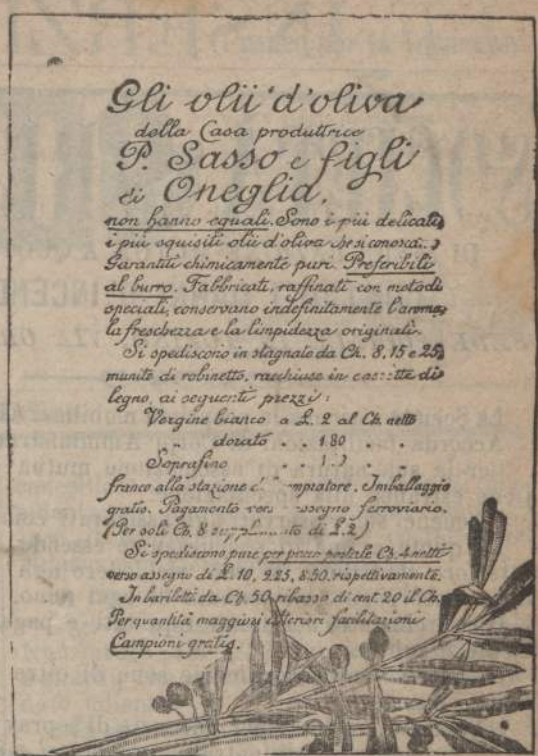 Gli olii d'oliva
della Casa produttrice
P. Sasso e figli
di Oneglia,
non hanno eguali. Sono i più delicati,
i più squisiti olii d'oliva che si conosca.
Garantiti chimicamente puri. Preferibili
al burro. Fabbricati, raffinati con metodi
speciali, conservano indefinitamente l'aroma,
la freschezza e la limpidezza originali.
Si spediscono in stagnate da Ch. 8, 15 e 25,
munite di robinetto, racchiuse in cassette di
legno, ai seguenti prezzi:
Vergine bianco a £. 2 al Ch. netto
" dorato . 1.80 . .
Soprafino
franco alla stazione compratore. Imballaggio
gratis. Pagamento verso assegno ferroviario.
(Per soli Ch. 8 supplemento di £. 2)
Si spediscono pure per pacco postale Ch. 4 netti
verso assegno di £. 10, 9.25, 8.50, rispettivamente.
In bariletti da Ch. 50, ribasso di cent. 20 il Ch.
Per quantità maggiori ulteriori facilitazioni
Campioni gratis.